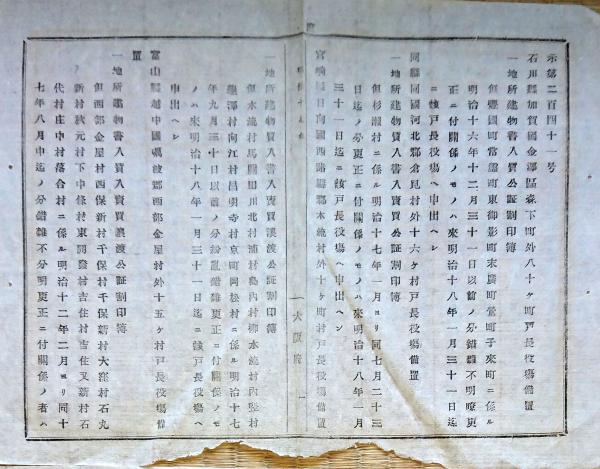 示第二百四十一号
石川縣加賀國金澤區森下町外八十ケ町戸長役塲備置
一地所建物書入質公証割印簿
但豐國町常盤町東御影町末廣町鶯町子來町ニ係ル
明治十六年十二月三十一日以前ノ分錯雜不明瞭更
正ニ付關係ノモノハ來明治十八年一月三十一日迄
ニ該戸長役塲ヘ申出ヘシ
同縣同國河北郡倉見村外十六ケ村戸長役塲備置
一地所建物質入書入賣買公証割印簿
但杉瀬村ニ係ル明治十七年一月ヨリ同七月二十三
日迄ノ分更正ニ付關係ノモノハ來明治十八年一月
三十一日迄ニ該戸長役塲ヘ申出ヘシ
宮崎縣日向國西諸縣郡水流村外十ケ町村戸長役塲備置
大阪府
一地所建物質入書入賣買讓渡公証割印簿
但水流村馬關田川北村浦村島內村柳水流村內竪村
龜澤村向江村昌明寺村京町岡松村ニ係ル明治十七
年九月三十日以前ノ分紛亂錯雜更正ニ付關係ノモ
ノハ來明治十八年一月三十一日迄ニ該戸長役塲ヘ
申出ヘシ
富山縣越中國礪波郡西部金屋村外十五ケ村戸長役塲備
置
一地所建物書入質賣買讓渡公証割印簿
但西部金屋村西保新村千保村千保新村大窪村石丸
新村秋元村下中條村東開發村吉住村吉住又新村石
代村庄中村落合村ニ係ル明治十二年二月ヨリ同十
七年八月中迄ノ分錯雜不分明更正ニ付關係ノ者ハ